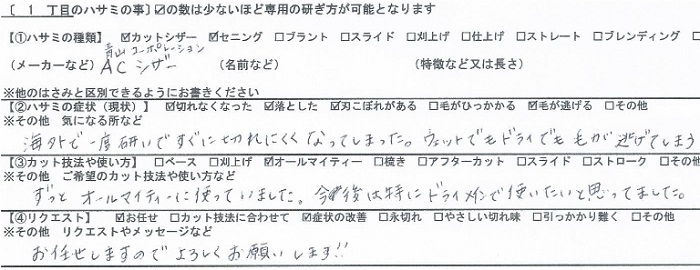 〔 1 丁目のハサミの事〕☑の数は少ないほど専用の研ぎ方が可能となります
【①ハサミの種類】 ☑カットシザー ☑セニング □ブラント □スライド □刈上げ □仕上げ □ストレート □ブレンディング □
青山コーポレーション
(メーカーなど) AC シザー (名前など) (特徴など又は長さ)
※他のはさみと区別できるようにお書きください
【②ハサミの症状（現状）】 ☑切れなくなった ☑落とした ☑刃こぼれがある □毛がひっかかる ☑毛が逃げる □その他
※その他 気になる所など
海外で一度研いですぐに切れにくくなってしまった。ウェットでもドライでも毛が逃げてしまう
【③カット技法や使い方】 □ベース □刈上げ ☑オールマイティー □梳き □アフターカット □スライド □ストローク □その他
※その他 ご希望のカット技法や使い方など
ずっとオールマイティーに使っていました。今後は特にドライメインで使いたいと思ってました。
【④リクエスト】 ☑お任せ □カット技法に合わせて ☑症状の改善 □永切れ □やさしい切れ味 □引っかかり難く □その他
※その他 リクエストやメッセージなど
お任せしますのでよろしくお願いします!!